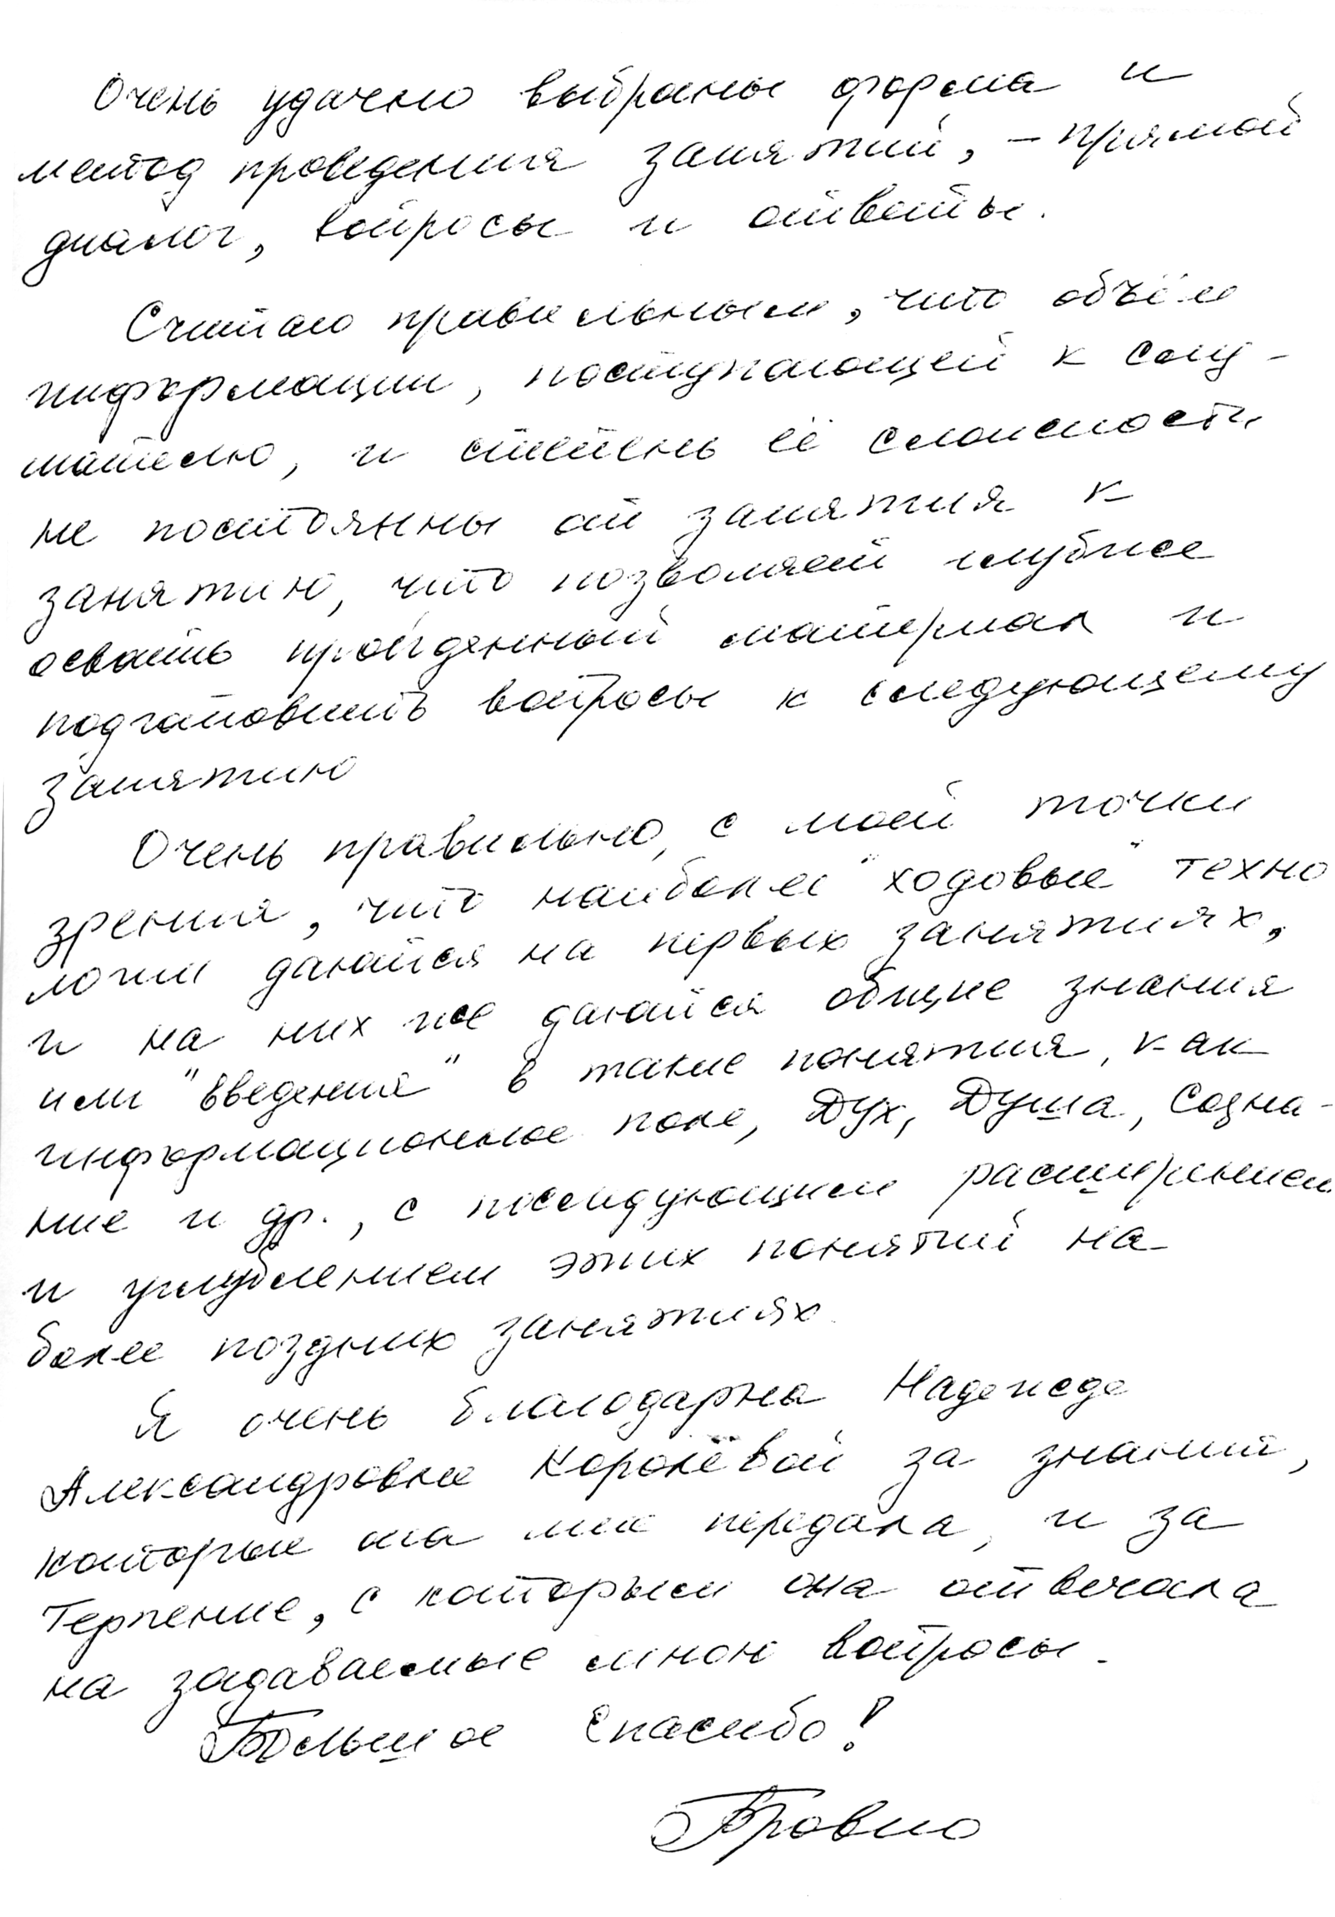 Очень удачно выбраны форма и
метод проведения занятий, – прямой
диалог, вопросы и ответы.
Считаю правильным, что объём
информации, поступающей к слу-
шателю, и степень её сложности
не постоянны от занятия к
занятию, что позволяет глубже
освоить пройденный материал и
подготовить вопросы к следующему
занятию
Очень правильно, с моей точки
зрения, что наиболее "ходовые" техно
логии даются на первых занятиях,
и на них же даются общие знания
или "введения" в такие понятия, как
информационное поле, Дух, Душа, Созна-
ние и др., с последующим расширением
и углублением этих понятий на
более поздних занятиях.
Я очень благодарна Надежде
Александровне Королёвой за знания,
которые она мне передала, и за
терпение, с которым она отвечала
на задаваемые мною вопросы.
Большое спасибо!